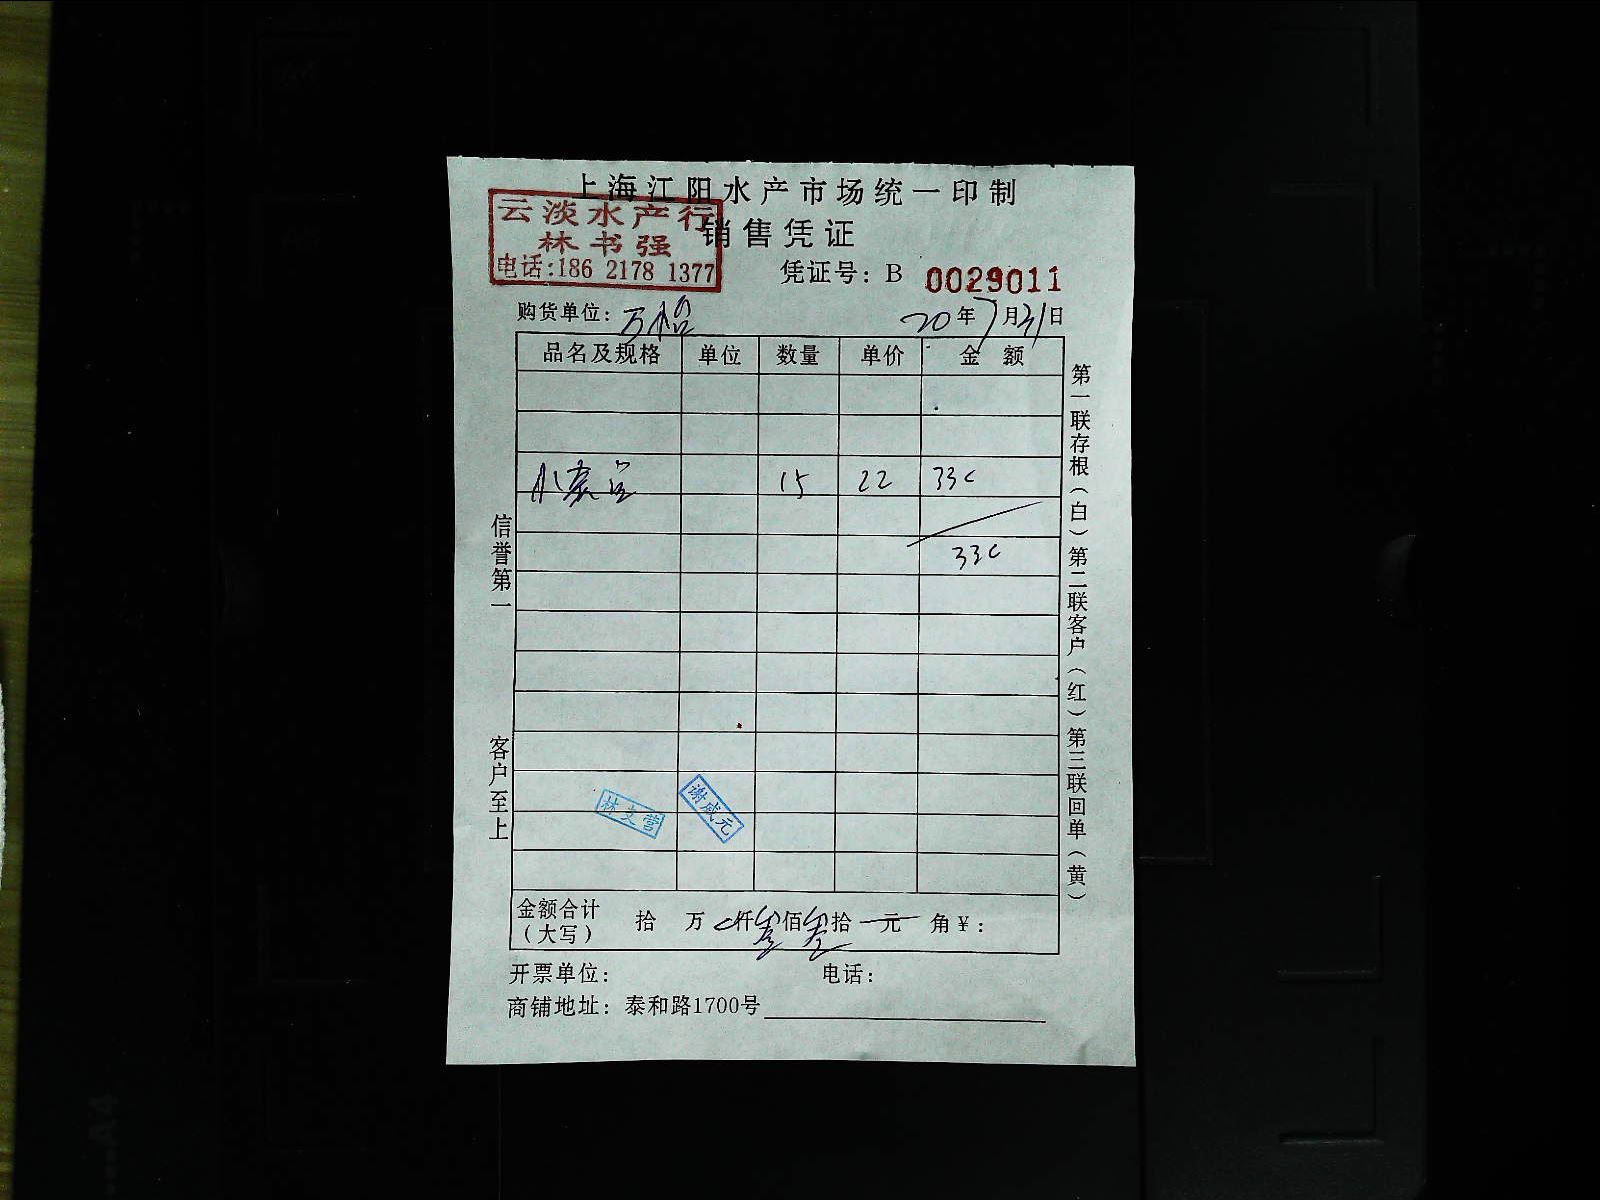 上海江阳水产市场统一印制
云淡水产行
林书强
电话:186 2178 1377
销售凭证
凭证号: B 0029011
购货单位: 万 20年7月31日
品名及规格 单位 数量 单价 金额
小 15 22 330
330
林文营
谢成元
金额合计(大写) 拾 万 仟叁佰叁拾 元 角¥:
开票单位: 电话:
商铺地址: 泰和路1700号
信誉第一 客户至上
第一联存根(白)第二联客户(红)第三联回单(黄)